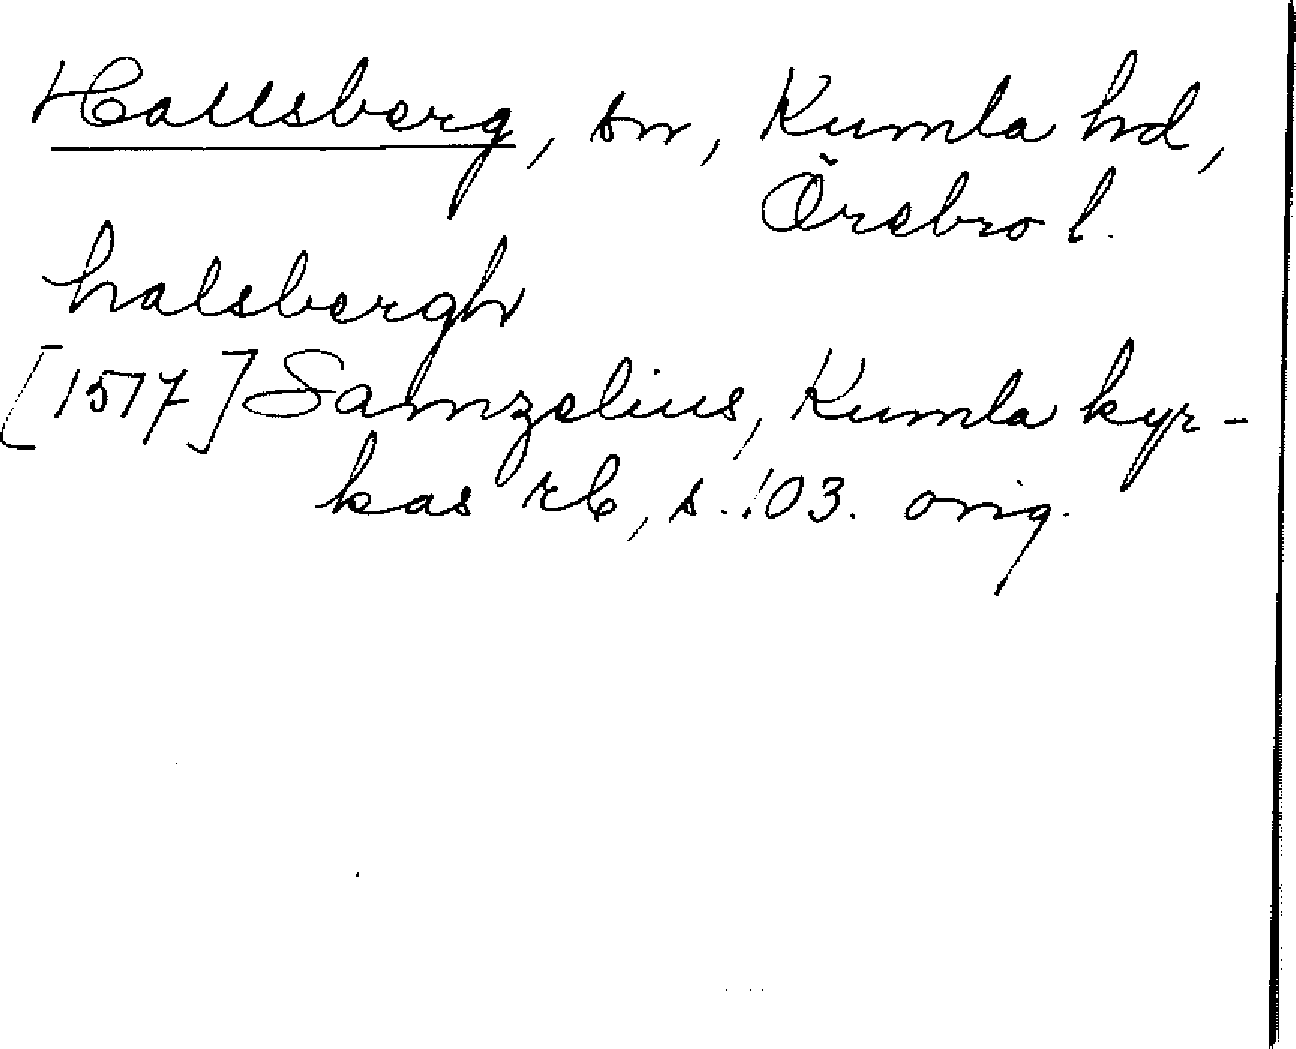 Hallsberg, sn, Kumla hd,
Örebro l.
halsbergh
[1517] Samzelius, Kumla kyr-
kas rb, s. 103. orig.